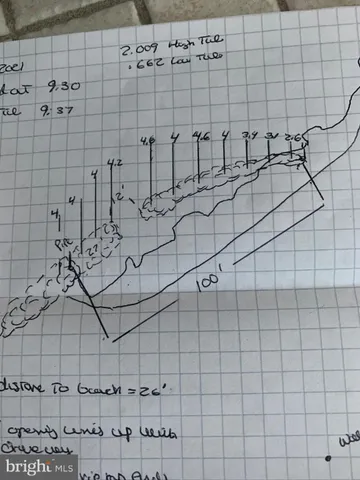 2.009 High Tide
2021
.662 Low Tide
at 9:30
9:37
4.6 4 4.6 4 3.4 3. 2.6
4.2
4
4
4
2'
100'
Distance To Beach = 26'
opening lines up with
Driveway
bright MLS